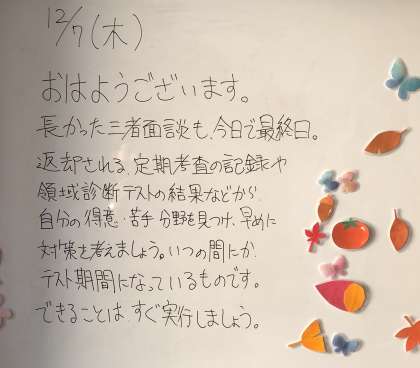 12/7(木)
おはようございます。
長かった三者面談も、今日で最終日。
返却される、定期考査の記録や
領域診断テストの結果などから、
自分の得意・苦手分野を見つけ、早めに
対策を考えましょう。いつの間にか
テスト期間になっているものです。
できることは すぐ実行しましょう。